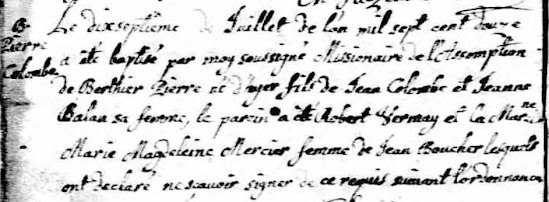 B.
Pierre
Colombe
Le dixseptième de Juillet de l'an mil sept cent douze
a été baptisé par moy soussigné Missionaire de l'Assomption
de Berthier Pierre né d'hyer fils de Jean Colombe et Jeanne
Balan sa femme, le parin a été Robert Vermay et la Marne
Marie Magdeleine Mercier femme de Jean Boucher lesquels
ont declaré ne scavoir signer de ce requis suivant l'ordonnance